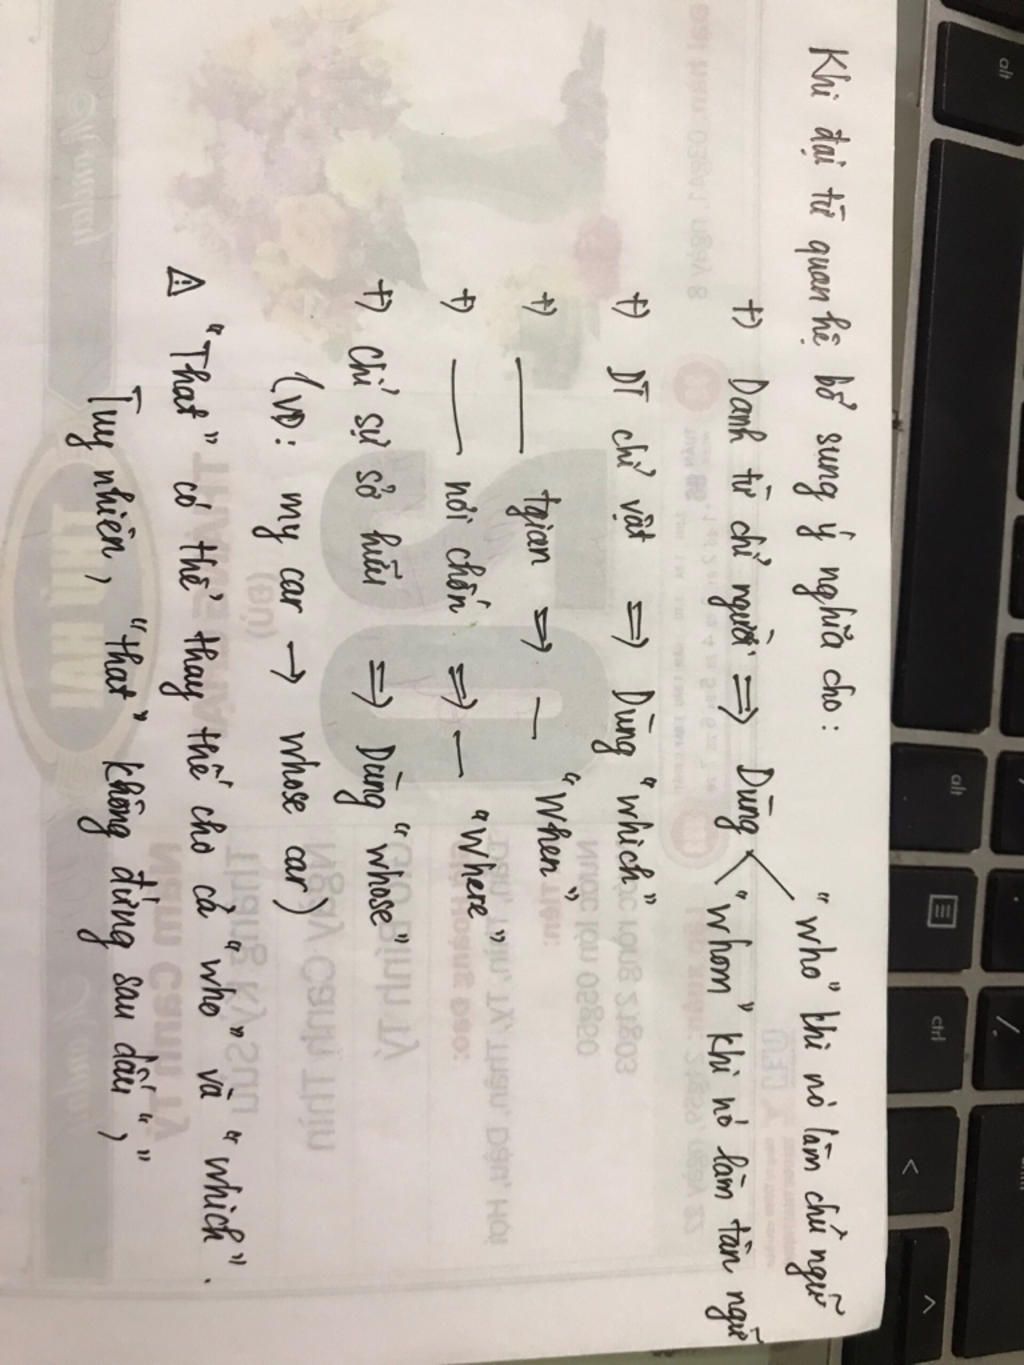 Khi đại từ quan hệ bổ sung ý nghĩa cho:
"who" khi nó làm chủ ngữ
+) Danh từ chỉ người => Dùng <
"whom" khi nó làm tân ngữ
+) DT chỉ vật => Dùng "which"
+) —— tgian => — "When"
+) —— nơi chốn => — "Where"
+) chỉ sự sở hữu => Dùng "whose"
(VD: my car → whose car)
⚠ "That" có thể thay thế cho cả "who" và "which".
Tuy nhiên, "that" không đứng sau dấu ","
alt
alt
ctrl